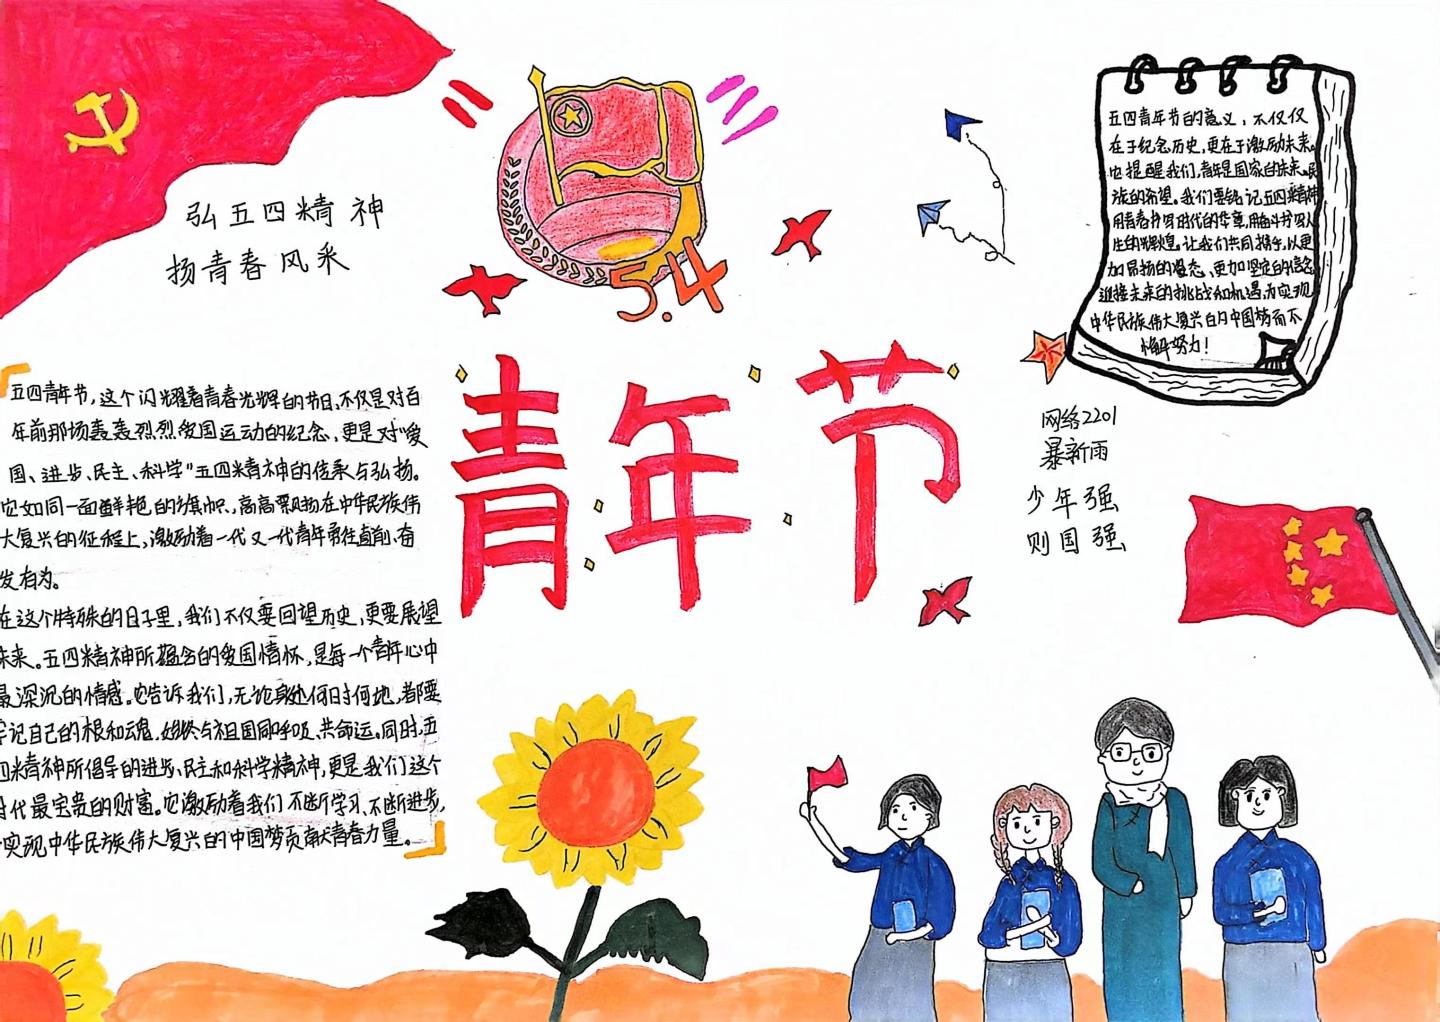 弘五四精神
扬青春风采
5.4
青年节
五四青年节的意义，不仅仅
在于纪念历史，更在于激励未来。
它提醒我们，青年是国家的未来，民
族的希望。我们要铭记五四精神
用青春书写时代的华章，用奋斗书写人
生的辉煌。让我们共同携手，以更
加昂扬的姿态、更加坚定的信念
迎接未来的挑战和机遇，为实现
中华民族伟大复兴的中国梦而不
懈努力！
五四青年节，这个闪耀着青春光辉的节日，不仅是对百
年前那场轰轰烈烈爱国运动的纪念，更是对“爱
国、进步、民主、科学”五四精神的传承与弘扬。
它如同一面鲜艳的旗帜，高高飘扬在中华民族伟
大复兴的征程上，激励着一代又一代青年勇往直前、奋
发有为。
在这个特殊的日子里，我们不仅要回望历史，更要展望
未来。五四精神所蕴含的爱国情怀，是每一个青年心中
最深沉的情感。它告诉我们，无论身处何时何地，都要
牢记自己的根和魂，始终与祖国同呼吸、共命运。同时，五
四精神所倡导的进步、民主和科学精神，更是我们这个
时代最宝贵的财富。它激励着我们不断学习、不断进步，
实现中华民族伟大复兴的中国梦贡献青春力量。
网络2201
暴新雨
少年强
则国强